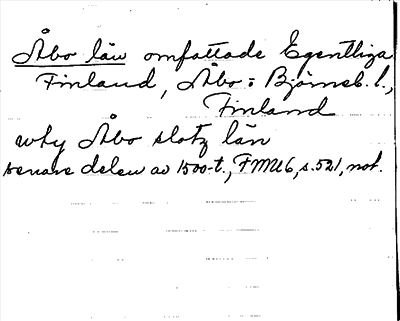 Åbo län omfattade Egentliga
Finland, Åbo: Björneb. l.,
Finland
Åbo slotz län
senare delen av 1500-t., FMU 6, s. 521, not.